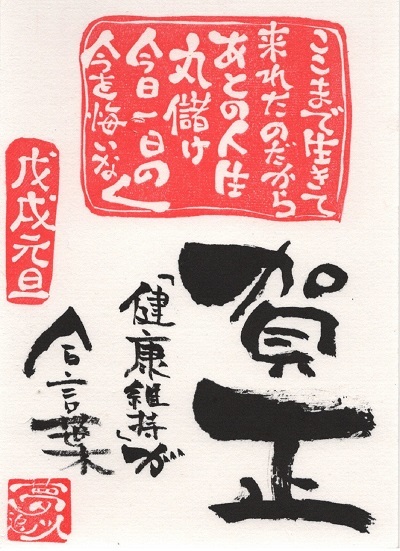 ここまで生きて
来れたのだから
あとの人生
丸儲け
今日一日の
今を悔いなく
賀正
「健康維持」が
合言葉
戊戌元旦